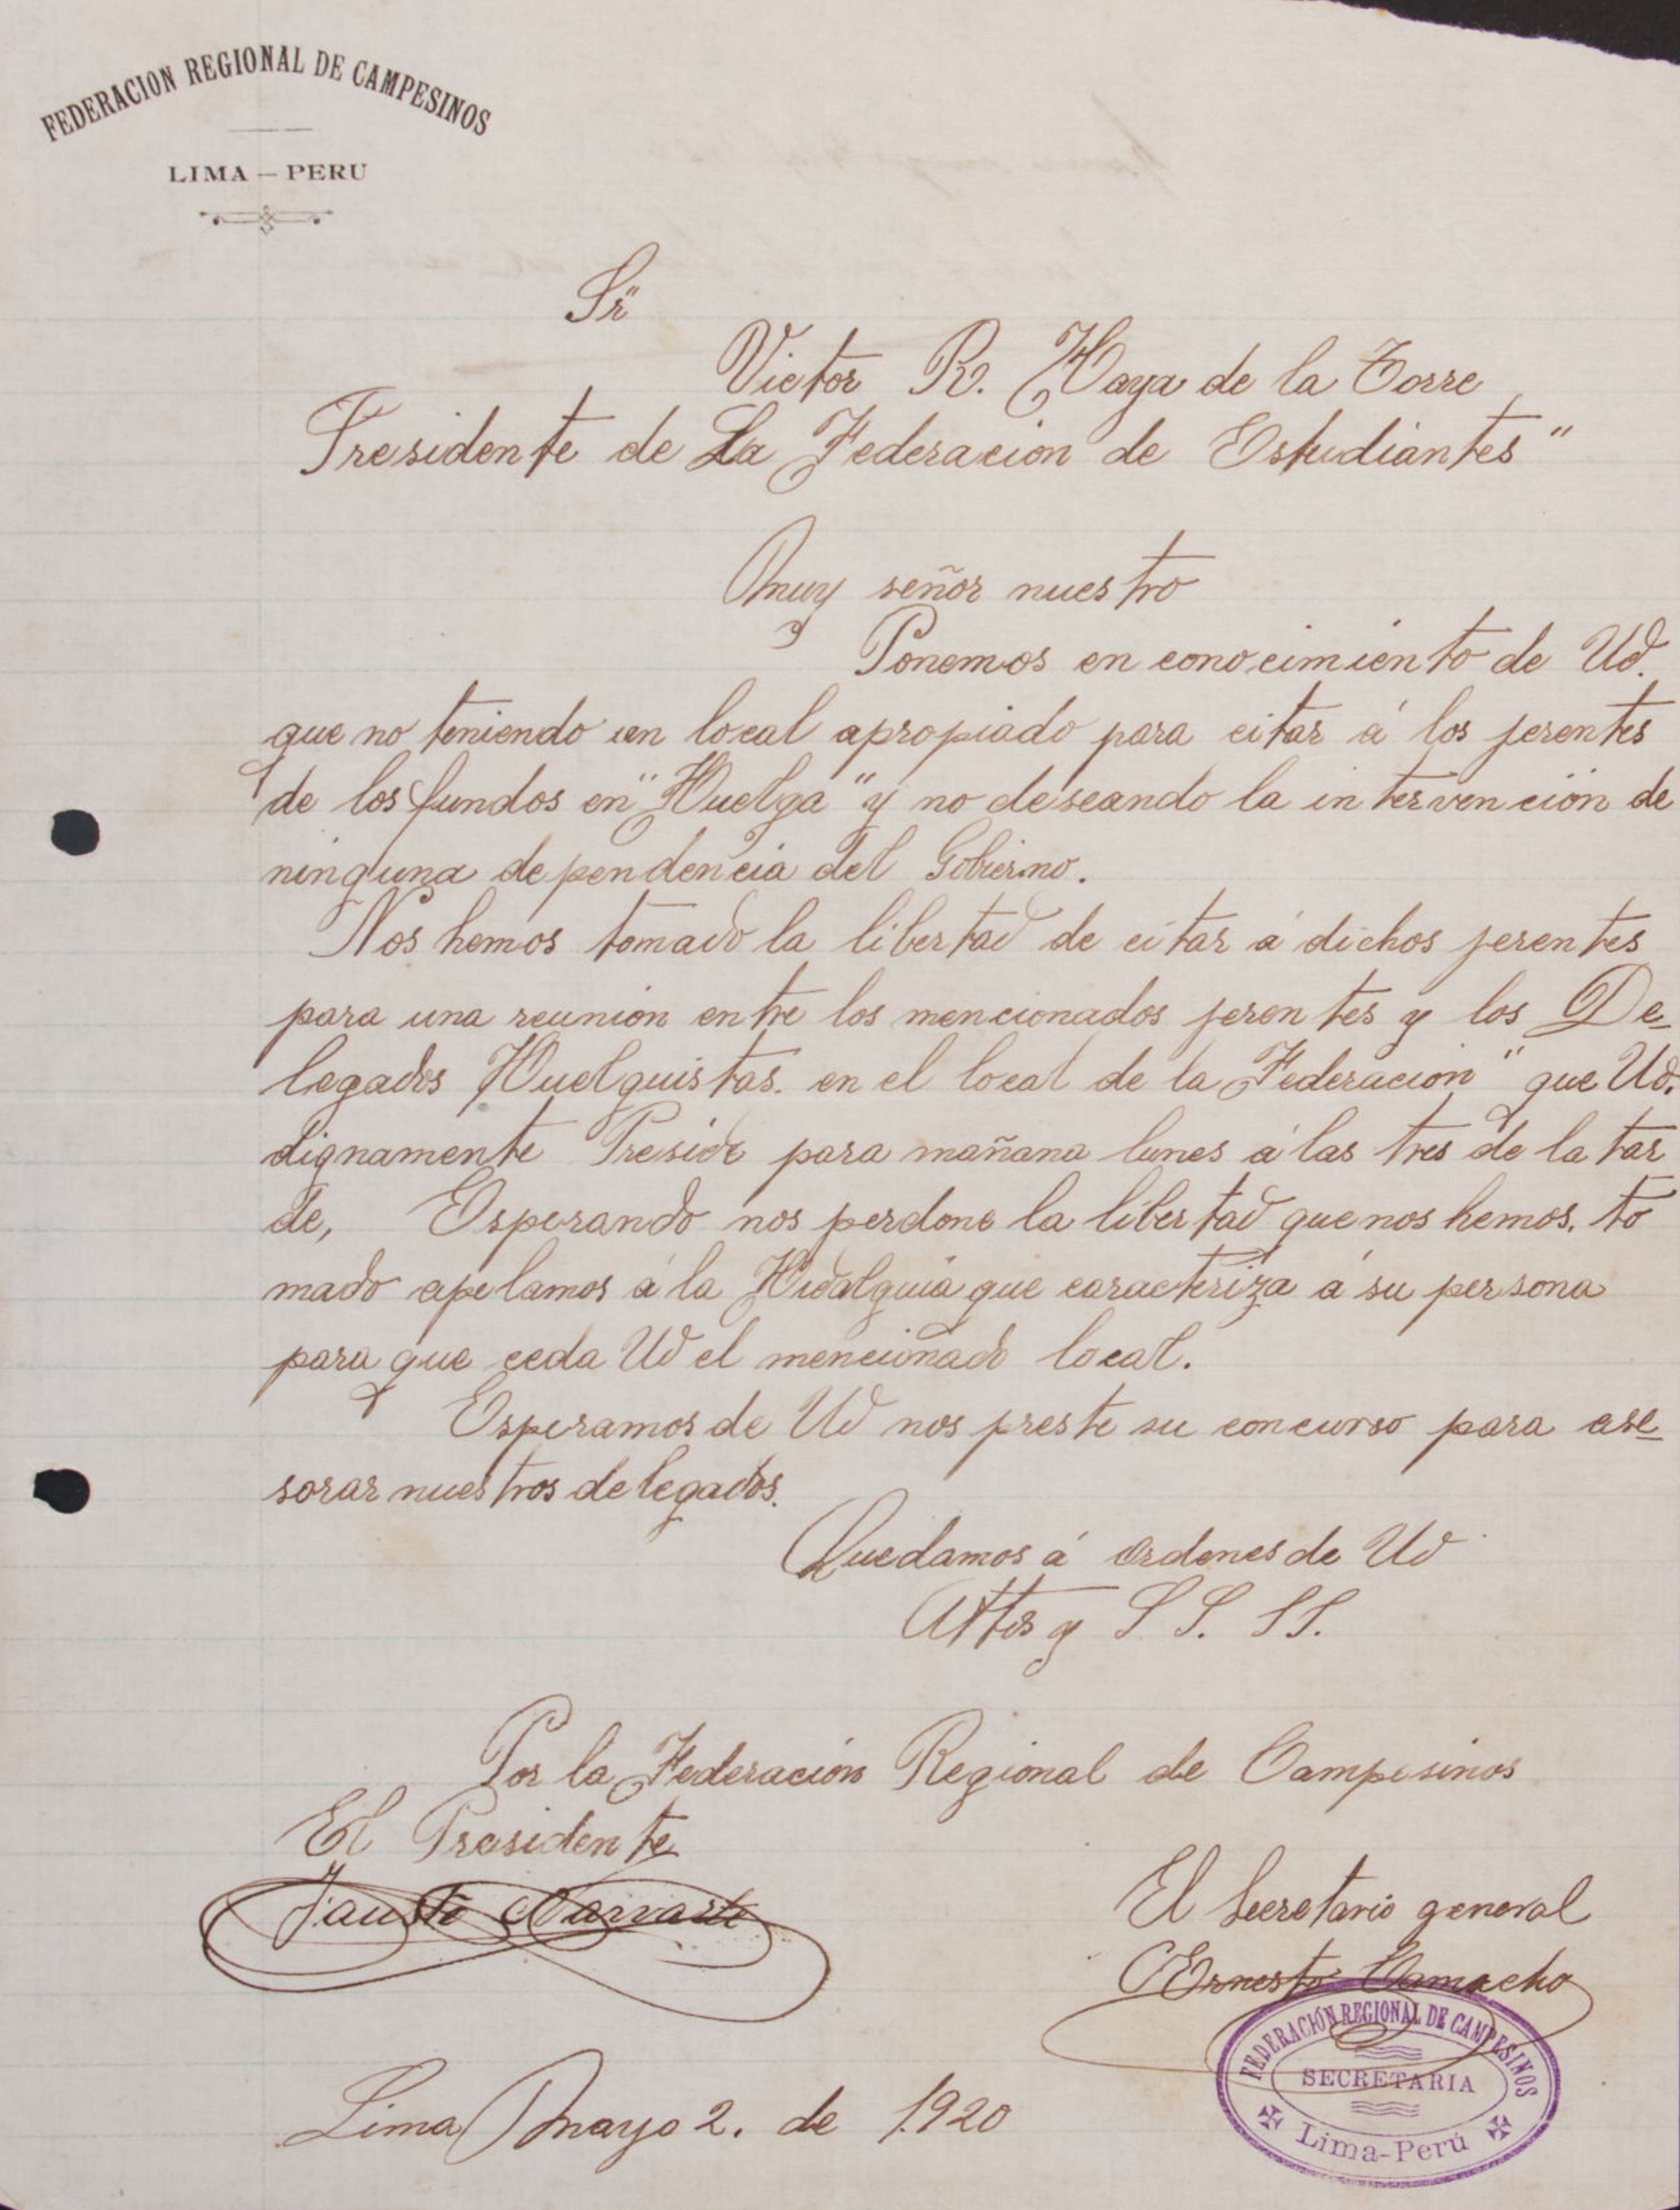 FEDERACION REGIONAL DE CAMPESINOS
LIMA — PERU
Sr
Victor R. Haya de la Torre
Presidente de La Federacion de Estudiantes"
Muy señor nuestro
Ponemos en conocimiento de Ud.
que no teniendo un local apropiado para citar á los jerentes
de los fundos en "Huelga" y no deseando la intervención de
ninguna dependencia del Gobierno.
Nos hemos tomado la libertad de citar á dichos jerentes
para una reunion entre los mencionados jerentes y los De-
legados Huelguistas. en el local de la Federacion" que Ud.
dignamente Preside para mañana lunes á las tres de la tar
de, Esperando nos perdone la libertad que nos hemos. to
mado apelamos á la Hidalguia que caracteriza á su persona
para que ceda Ud el mencionado local.
Esperamos de Ud nos preste su concurso para ase-
sorar nuestros delegados.
Quedamos á ordenes de Ud
Attos y S S. SS.
Por la Federación Regional de Campesinos
El Presidente
Fausto Narvarte
El Secretario general
Ernesto Camacho
FEDERACIÓN REGIONAL DE CAMPESINOS
SECRETARIA
Lima-Perú
Lima Mayo 2. de 1920